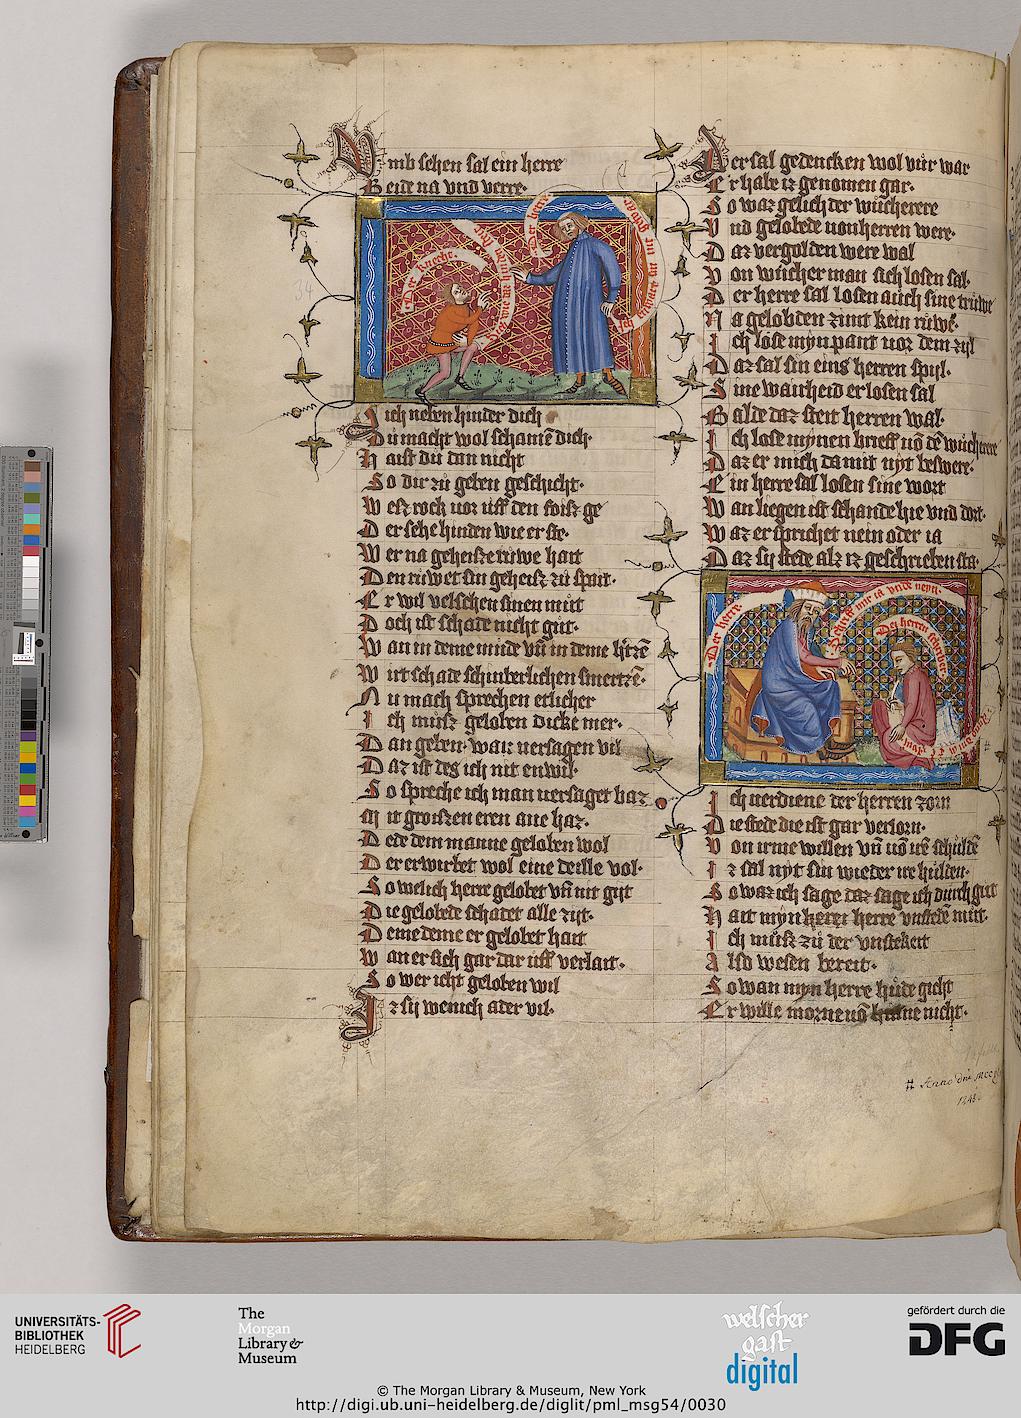 Vmb sehen sal ein herre
Beide na vnd verre·
34
Der herre
Der knecht·
Sich neben hinder dich
Du macht wol schamē dich·
Hast du dan nicht
So dir zů geben geschicht·
Wesz rock vor uff den foisz ge
Der sehe hinden wie er ste·
Wer na geheisze růwe hait
Den růwet sin geheisz zů spait·
Er wil velschen sinen můt
Doch ist schade nicht gůt·
Wan in deme můde vn̄ in deme h'tzē
Wirt schade schinberlichen smertzē·
Nu mach sprechen etlicher
Ich můsz geloben dicke mer·
Dan geben· waz versagen vil
Daz ist des ich nit enwil·
So spreche ich man versaget baz
Mit groiszen eren ane haz·
Dede dem manne geloben wol
Der erwirbet wol eine deille vol·
So welich herre gelobet vn̄ nit gijt
Die gelobede schadet alle zijt·
Deme deme er gelobet hait
Wan er sich gar dar uff verlait·
So wer icht geloben wil
Iz sij wenich ader vil·
Der sal gedencken wol vůr war
Er habe iz genomen gar·
So waz gelich der wůcherere
Vnd gelobede von herren were·
Daz vergolden were wal
Von wůcher man sich losen sal·
Der herre sal losen auch sine trůwe
Na gelobden zimt kein růwe·
Ich lose myn pant vor dem zijl
Daz sal sin eins herren spijl·
Sine wairheid er losen sal
Balde daz steit herren wal·
Ich lose mynen brieff vō dē wůcherere
Daz er mich da mit nyt beswere·
Ein herre sal losen sine wort
Wan liegen ist schande hie vnd dort·
Waz er sprichet nein oder ia
Daz sij stede alz iz geschrieben sta·
Der herre·
Schrib mir ia vnde neyn·
Des herren schriber·
Ich verdiene der herren zorn
Die stede die ist gar verlorn·
Von irme willen vn̄ vō irē schuldē
Iz sal nyt sin wieder ire hulden·
So waz ich sage daz sage ich durch gůt
Hait myn herre vnsteden můt·
Ich můsz zů der vnstekeit
Also wesen bereit·
So wan myn herre hude gicht
Er wille morne vō hinne nicht·
# Anno dni
UNIVERSITÄTS-
BIBLIOTHEK
HEIDELBERG
The
Morgan
Library &
Museum
welscher
gast
digital
gefördert durch die
DFG
© The Morgan Library & Museum, New York
http://digi.ub.uni-heidelberg.de/diglit/pml_msg54/0030